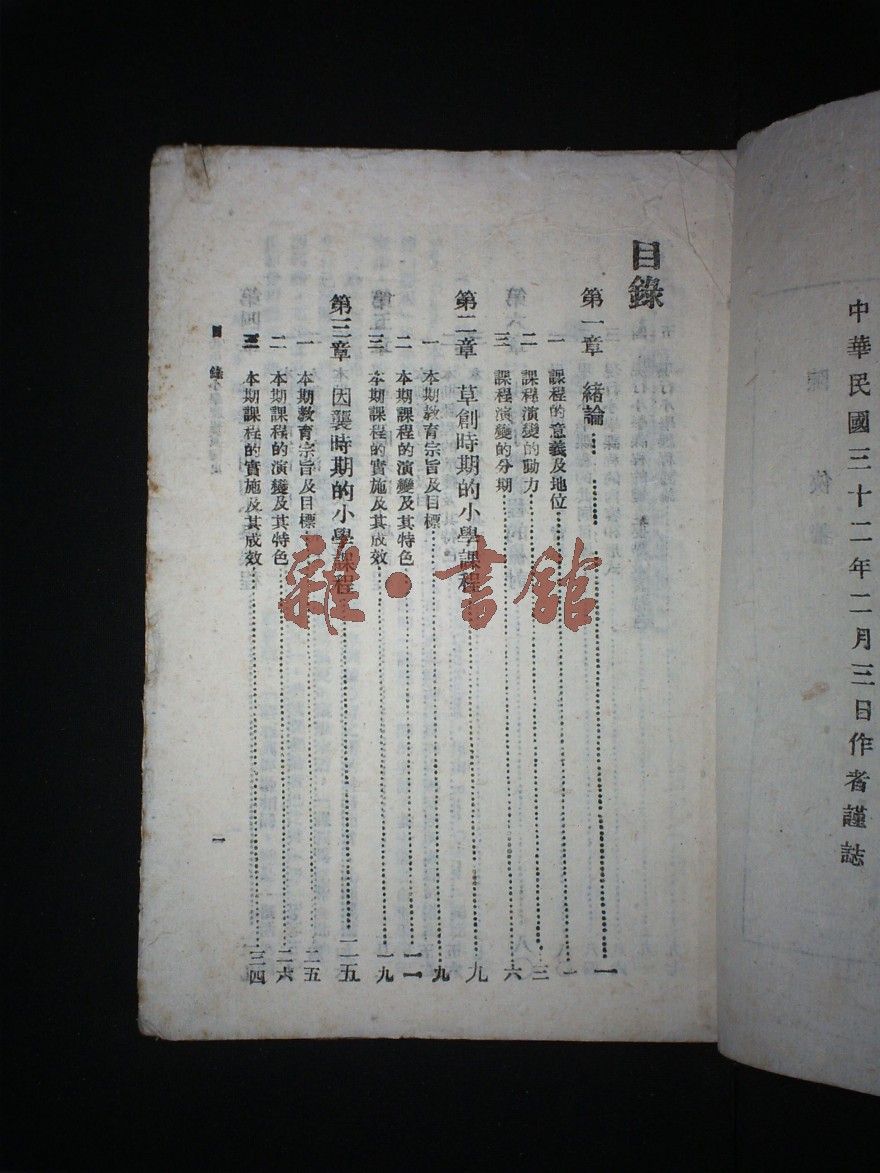 中華民國三十二年二月三日作者謹誌
目錄
第一章 緒論……一
一 課程的意義及地位……一
二 課程演變的動力……三
三 課程演變的分期……六
第二章 草創時期的小學課程……九
一 本期教育宗旨及目標……九
二 本期課程的演變及其特色……一一
三 本期課程的實施及其成效……一九
第三章 因襲時期的小學課程……二五
一 本期教育宗旨及目標……二五
二 本期課程的演變及其特色……二六
三 本期課程的實施及其成效……三四
目錄
一
雜·書館